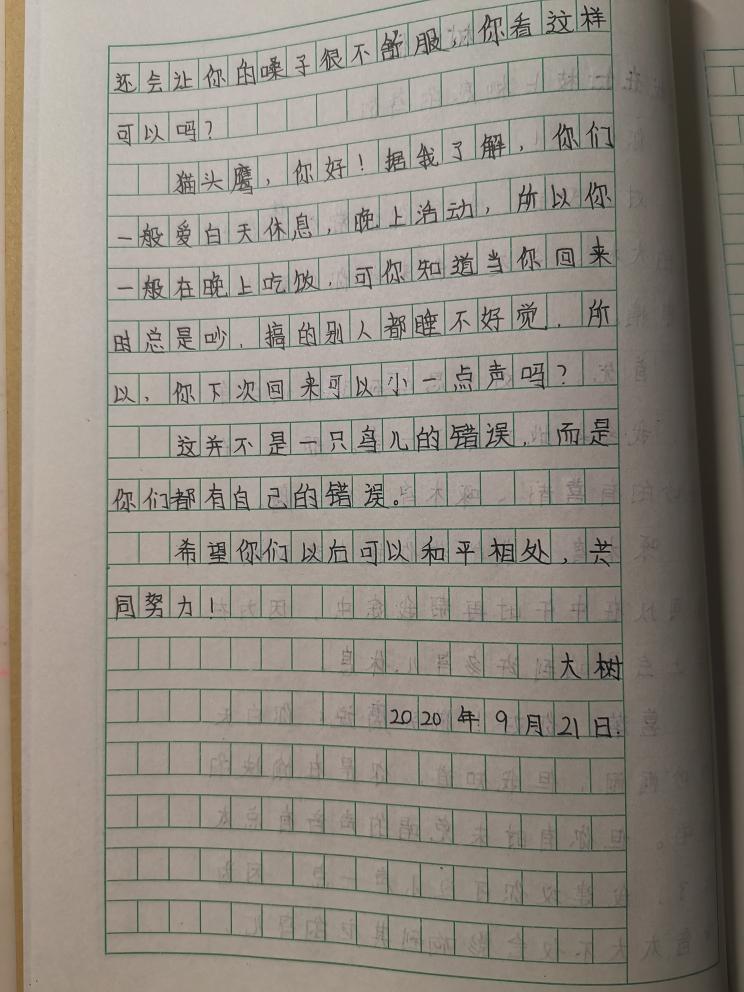 还会让你的嗓子很不舒服，你看这样
可以吗？
猫头鹰，你好！据我了解，你们
一般爱白天休息，晚上活动，所以你
一般在晚上吃饭，可你知道当你回来
时总是吵，搞的别人都睡不好觉，所
以，你下次回来可以小一点声吗？
这并不是一只鸟儿的错误，而是
你们都有自己的错误。
希望你们以后可以和平相处，共
同努力！
大树
2020年9月21日.